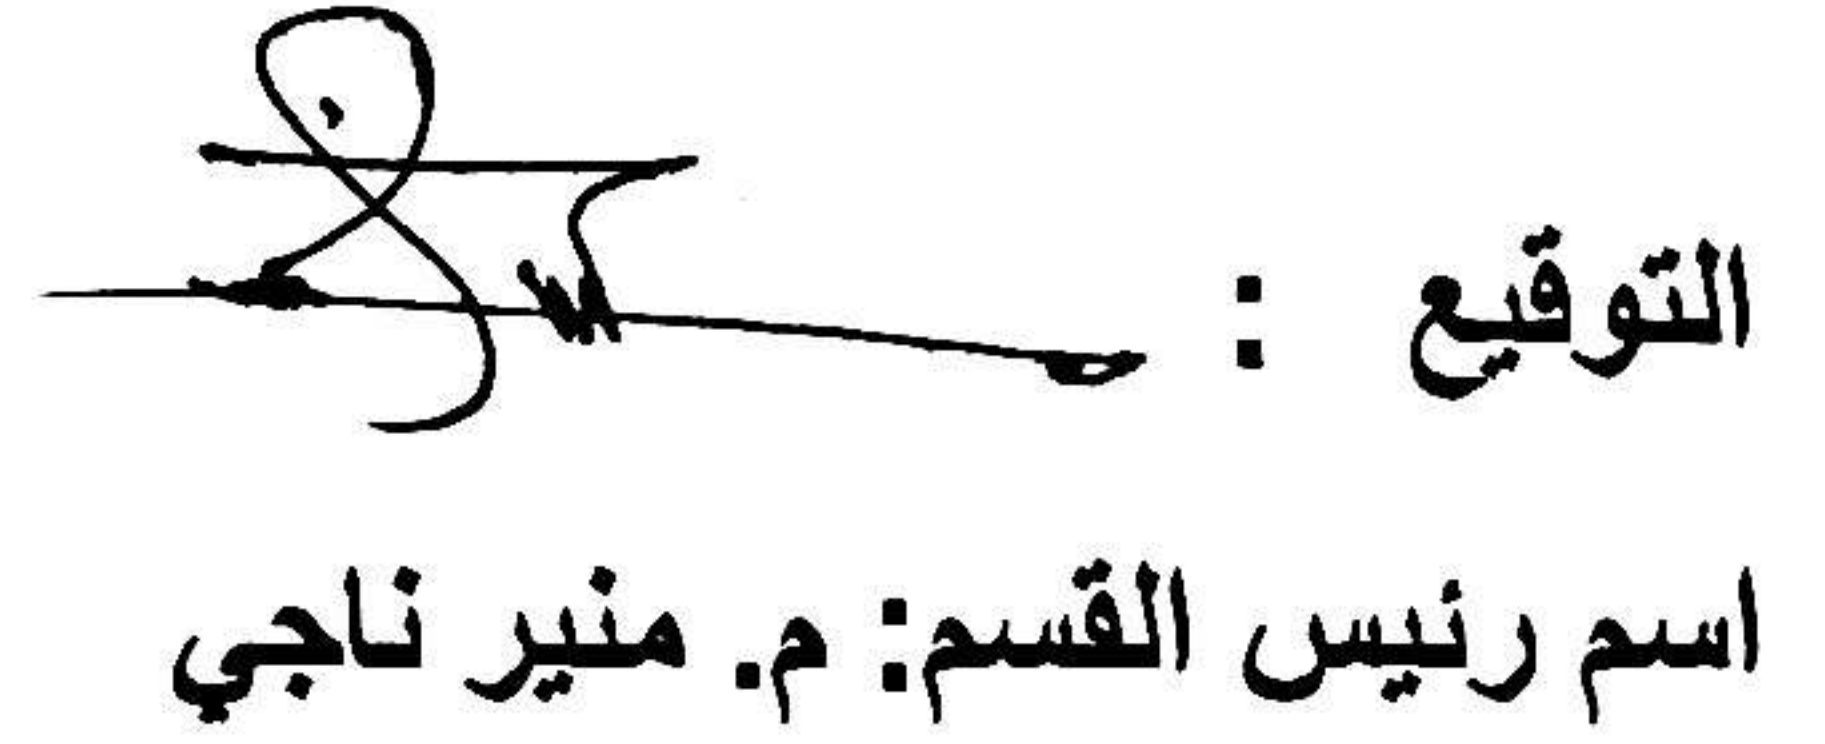 التوقيع :
اسم رئيس القسم: م. منير ناجي